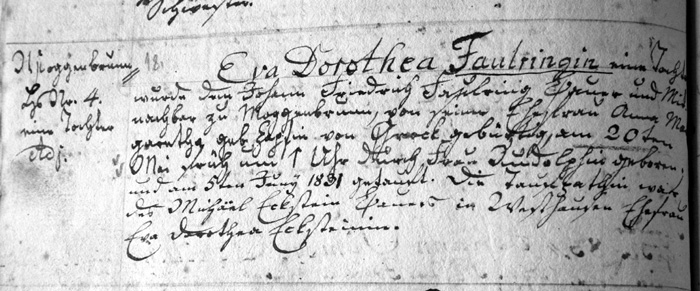 Schwester.
Moggenbrunn 18. Eva Dorothea Faulringin eine Tochter
Hs Nr. 4. wurde dem Johann Friedrich Faulring Bauer und Mit
eine Tochter nachbar zu Moggenbrunn, von seiner Ehefrau Anna Mar
garetha geb. von gebürtig, am 20ten
Mai früh um 1 Uhr durch Frau Rudolphin geboren,
und am 5ten Juny 1831 getauft. Die Taufpathin war
des Michael Eckstein Bauers in Westhausen Ehefrau
Eva Dorothea Ecksteinin.